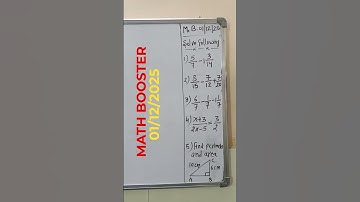 MATH BOOSTER
01/12/2025
M.B 01/12/25
Solve following
1) 5/7 - 3/14
2) 8/15 - 7/12 + 7/20
3) 6/7 - 1/7 - 1/7
4) x+3/2x-5 = 3/2
5) Find perimeter
and area
10cm
C
6cm
A
B